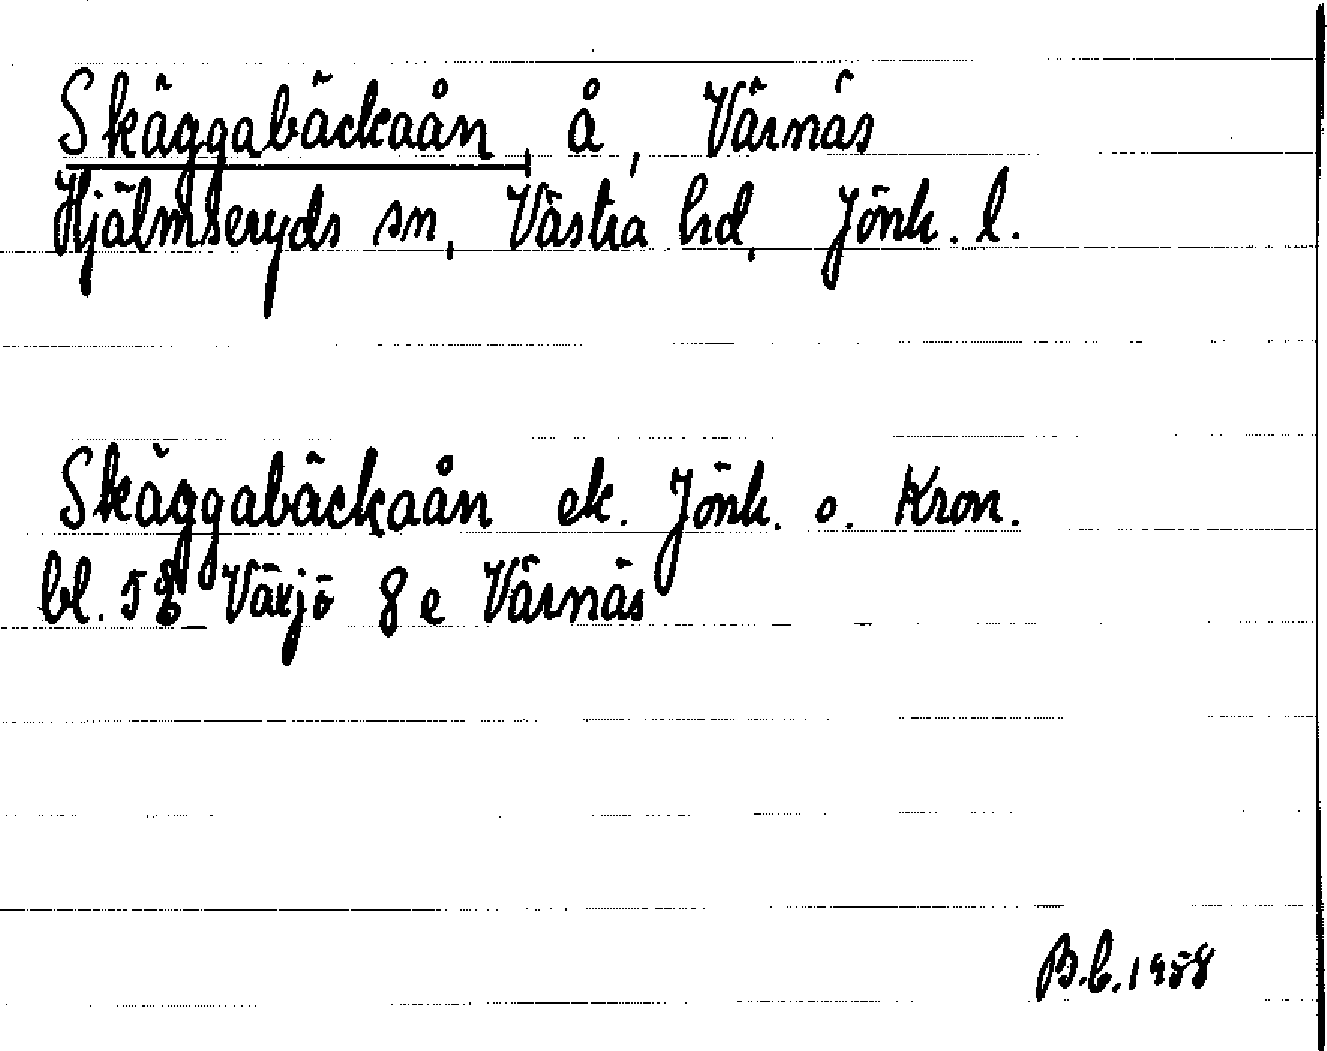 Skäggabäckaån, å, Värnäs
Hjälmseryds sn, Västra hd, Jönk. l.
Skäggabäckaån ek. Jönk. o. Kron.
bl. 52 Växjö 8 e Värnäs
B.L. 1958